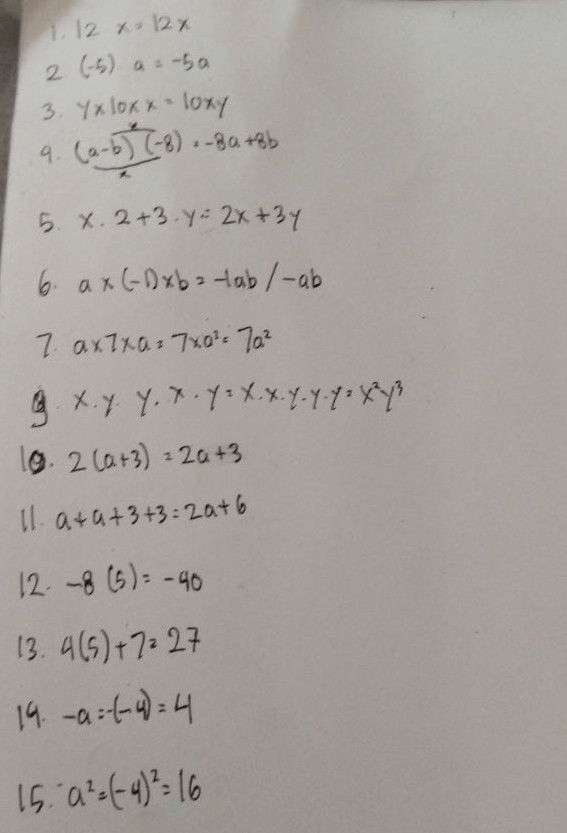 1. 12 x = 12x
2. (-5) a = -5a
3. y x 10 x x = 10xy
4. (a-b) (-8) = -8a+8b
5. x . 2 + 3 . y = 2x + 3y
6. a x (-1) x b = -1ab / -ab
7. a x 7 x a = 7 x a² = 7a²
9. x . y . y . x . y = x . x . y . y . y = x²y³
10. 2(a+3) = 2a+3
11. a+a+3+3 = 2a+6
12. -8(5) = -40
13. 4(5)+7 = 27
14. -a = -(-4) = 4
15. -a² = (-4)² = 16